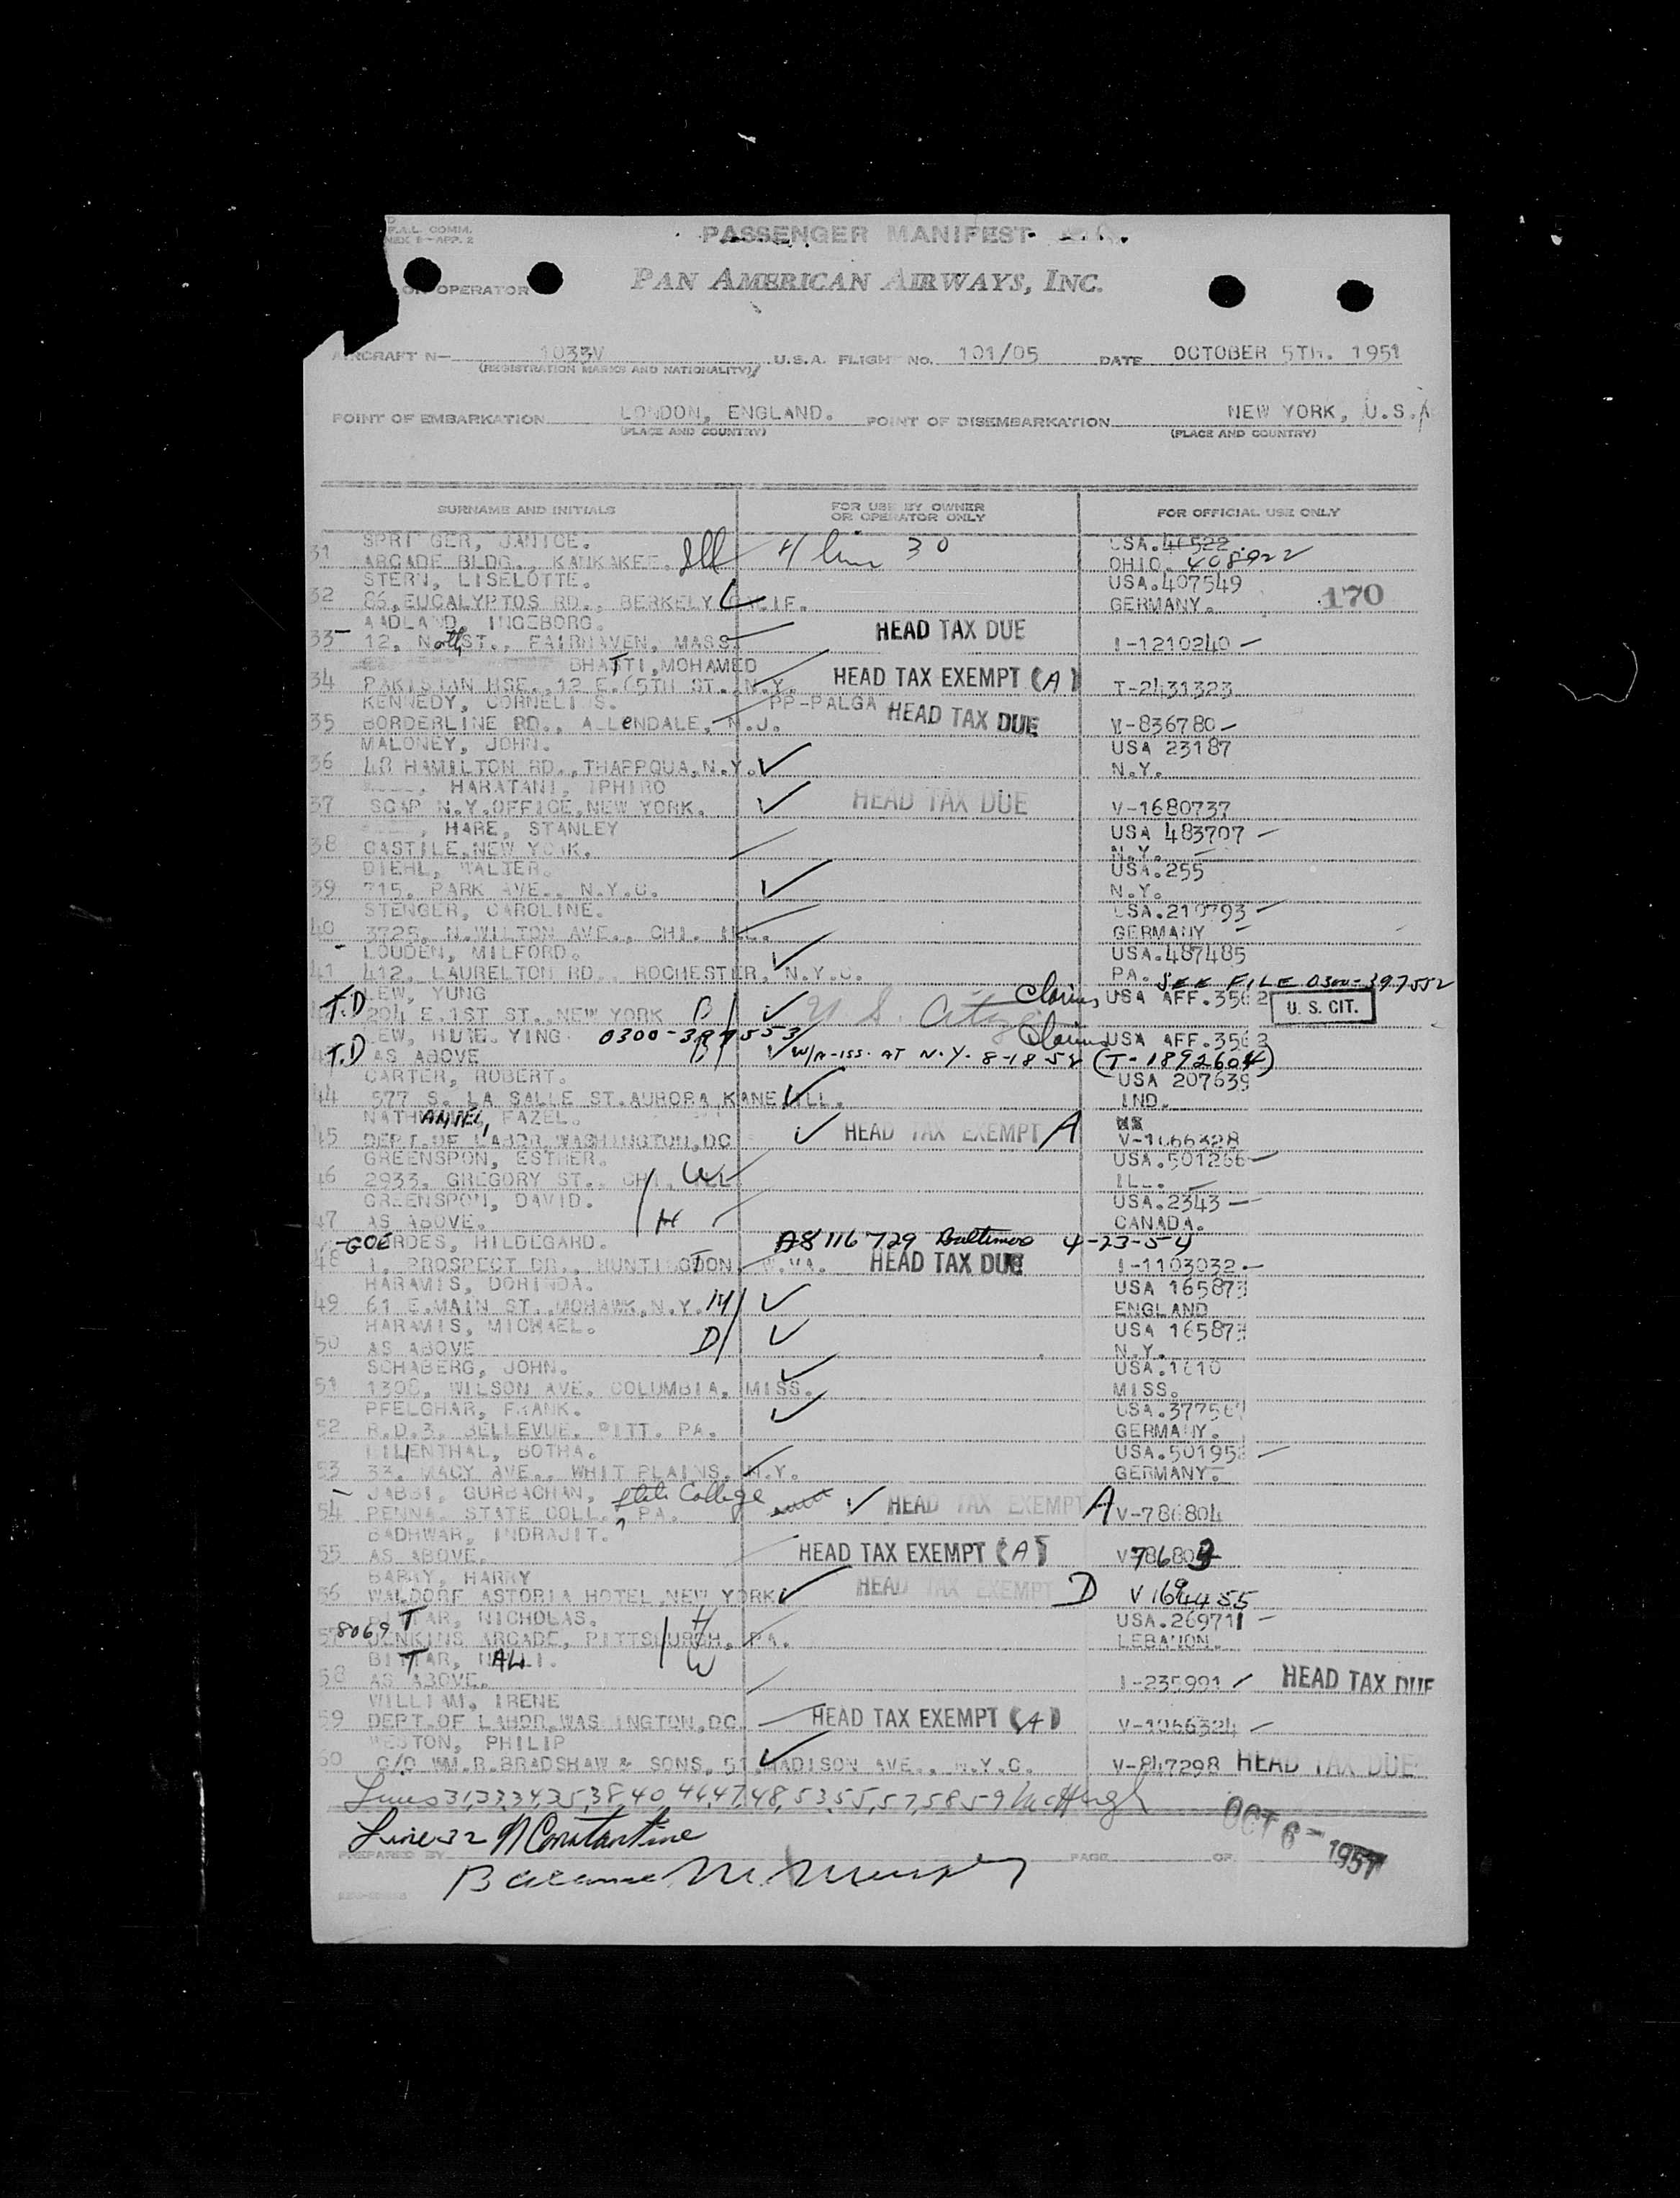 F.A.L. COMM.
PASSENGER MANIFEST
OPERATOR
PAN AMERICAN AIRWAYS, INC.
AIRCRAFT N— 1033V U.S.A. FLIGHT NO. 101/05 DATE OCTOBER 5TH. 1951
(REGISTRATION MARKS AND NATIONALITY)
POINT OF EMBARKATION LONDON, ENGLAND. POINT OF DISEMBARKATION NEW YORK, U.S.A
(PLACE AND COUNTRY) (PLACE AND COUNTRY)
SURNAME AND INITIALS FOR USE BY OWNER OR OPERATOR ONLY FOR OFFICIAL USE ONLY
SPRINGER, JANICE. USA.
31 ARCADE BLDG., KANKAKEE. Ill 30 OHIO. 408922
STERN, LISELOTTE. USA.407549
32 86, EUCALYPTOS RD., BERKELY CALIF. GERMANY. 170
AADLAND, INGEBORG. HEAD TAX DUE
33 12, North ST., FAIRHAVEN, MASS. I-1210240
BHATTI, MOHAMED HEAD TAX EXEMPT (A)
34 PAKISTAN HSE., 12 E. 65TH ST. N.Y. T-2431323
KENNEDY, CORNELIUS. PP-PALGA HEAD TAX DUE
35 BORDERLINE RD., ALLeNDALE, N.J. V-836780
MALONEY, JOHN. USA 23187
36 48 HAMILTON RD., THAPPQUA, N.Y. N.Y.
HARATANI, IPHIRO HEAD TAX DUE
37 SCAP N.Y. OFFICE, NEW YORK. V-1680737
, HARE, STANLEY USA 483707
38 CASTILE, NEW YORK. N.Y.
DIEHL, WALTER. USA.255
39 715, PARK AVE., N.Y.C. N.Y.
STENGER, CAROLINE. USA.210793
40 3725, N. WILTON AVE., CHI. ILL. GERMANY
LOUDEN, MILFORD. USA.487485
41 412, LAURELTON RD., ROCHESTER, N.Y.C. PA. SEE FILE 0300-397552
LEW, YUNG Claims USA AFF.3562
T.D 204 E. 1ST ST., NEW YORK B/ U S. Citz U. S. CIT.
LEW, YING 0300-397553 Claims USA AFF.3562
T.D AS ABOVE B/ W/A-ISS. AT N.Y. 8-18-58 (T-1892604)
CARTER, ROBERT. USA 207639
44 577 S. LA SALLE ST. AURORA KANE ILL. IND.
NATHANIEL, FAZEL.
45 DEPT. OF LABOR, WASHINGTON, DC HEAD TAX EXEMPT A V-1066328
GREENSPON, ESTHER. USA.501266
46 2933, GREGORY ST., CHI. ILL. W ILL.
GREENSPON, DAVID. USA.2343
47 AS ABOVE. H CANADA.
GOERDES, HILDEGARD. A8 116 729 Baltimore 4-23-54
48 1, PROSPECT DR., HUNTINGTON, W.VA. HEAD TAX DUE I-1103032
HARAMIS, DORINDA. USA 165873
49 61 E. MAIN ST., MOHAWK, N.Y. M/ ENGLAND
HARAMIS, MICHAEL. USA 165873
50 AS ABOVE D/ N.Y.
SCHABERG, JOHN. USA.1610
51 1308, WILSON AVE. COLUMBIA, MISS. MISS.
PFELGHAR, FRANK. USA.37756
52 R.D.3, BELLEVUE, PITT. PA. GERMANY.
LILIENTHAL, BOTHA. USA.50195
53 33, MACY AVE., WHIT PLAINS, N.Y. GERMANY.
JABBI, GURBACHAN, State College HEAD TAX EXEMPT A
54 PENNA. STATE COLL. PA. V-786804
BADHWAR, INDRAJIT.
55 AS ABOVE. HEAD TAX EXEMPT (A) V-786803
BARRY, HARRY HEAD TAX EXEMPT D
56 WALDORF ASTORIA HOTEL, NEW YORK V 1694455
BITTAR, NICHOLAS. H USA.269711
8069 57 JENKINS ARCADE, PITTSBURGH, PA. LEBANON.
BITTAR, W
58 AS ABOVE. I-235991 HEAD TAX DUE
WILLIAM, IRENE
59 DEPT. OF LABOR, WASHINGTON, DC. HEAD TAX EXEMPT (A) V-1066324
WESTON, PHILIP
60 C/O WM.R.BRADSHAW & SONS, 51 MADISON AVE., N.Y.C. V-847298 HEAD TAX DUE
Lines 31,33,34,35,38,40,46,47,48,53,55,57,58,59 McHugh
OCT 6- 1951
Line 32 N Constantine
PREPARED BY PAGE OF
Balance M. Murphy